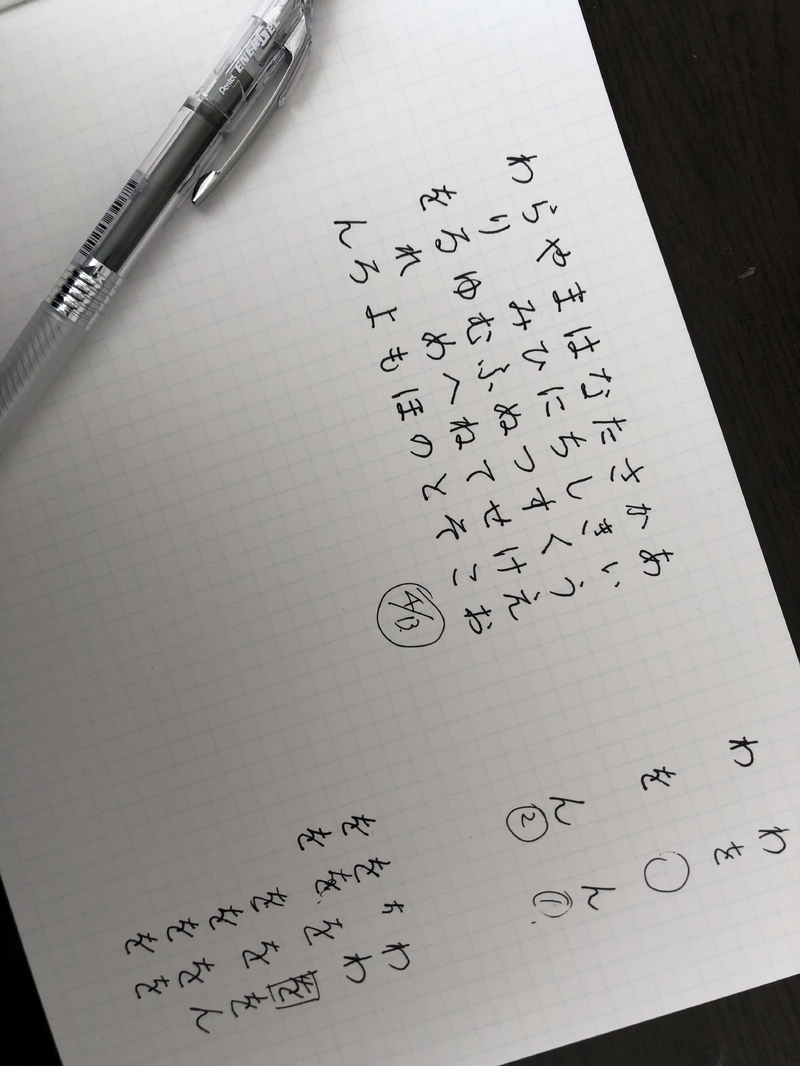 あいうえお
かきくけこ
さしすせそ
たちつてと
なにぬねの
はひふへほ
まみむめも
や ゆ よ
らりるれろ
わ を ん
わを○ん①
わをん②
わわををん
をををを
をををををを
をを
Pentel